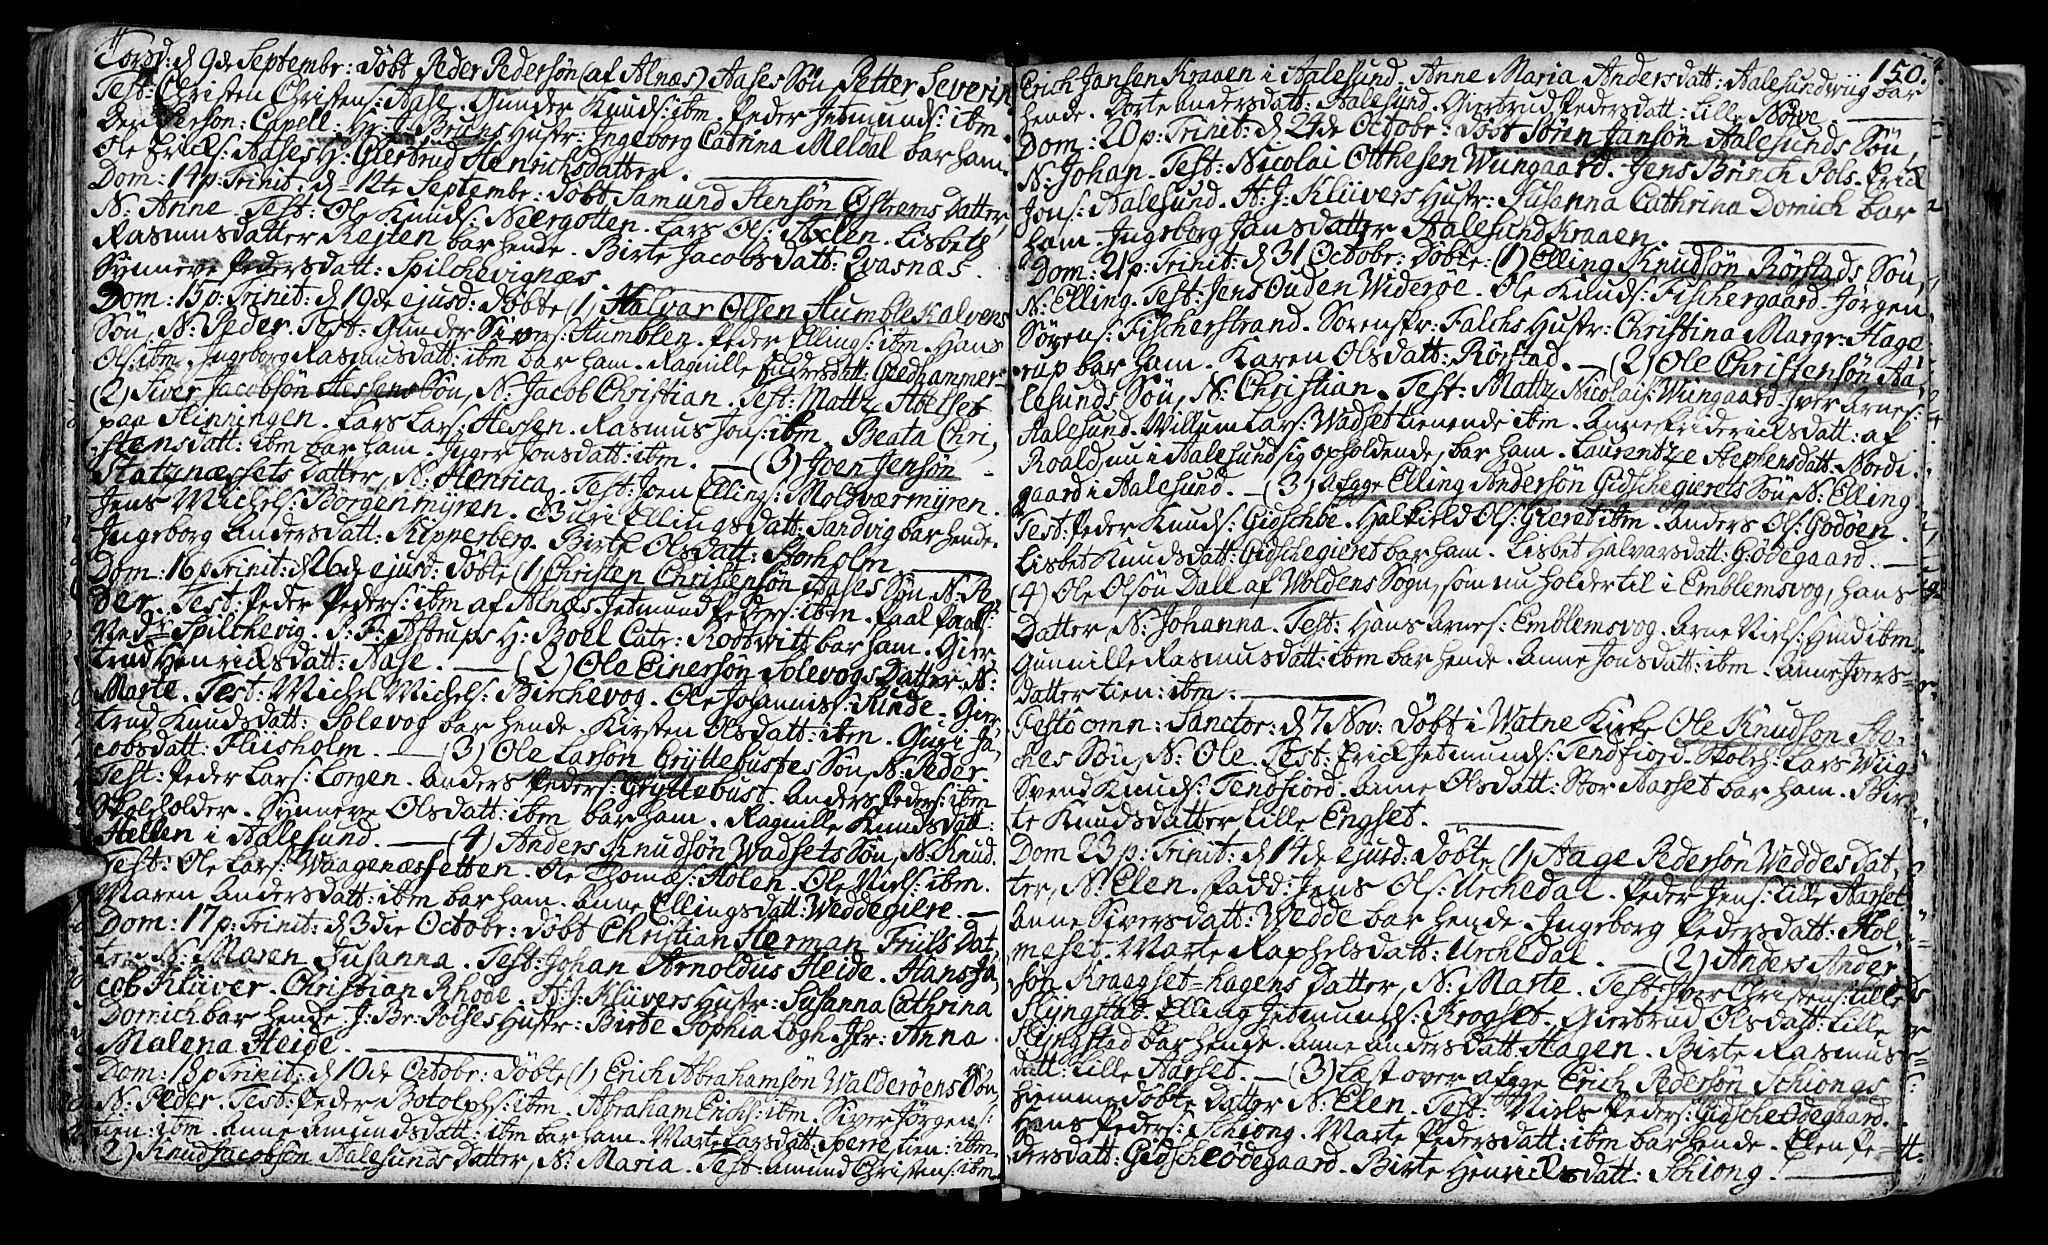 Torsd: d 9de Septembr: døbt Peder Pedersøn (af Alnæs) Aases Søn, Petter Severin
Test: Christen Christens: Aase. Gunder Knuds: ibm. Peder Jetmunds: ibm.
Den Person: Capell: Hr: J: Bruns Hustr: Ingeborg Catrina Meldal bar ham.
Ole Ericks: Aases H: Giertrud Henrichsdatter.
Dom: 14 p: Trinit: d 12te Septembr: Døbt Samund Stensøn Østrems Datter,
N: Anne. Test: Ole Knuds: Neergotten. Lars Ols: Axlen. Lisbeth
Rasmusdatter Rejten bar hende. Birte Jacobsdatt: Qvasnæs.
Synneve Pedersdatt: Spilchevignæs.
Dom: 15 p: Trinit: d 19de ejusd: døbte (1) Halvar Olsen Humblekalvens
Søn, N: Peder. Test: Gunder Sivers: Humblen. Peder Ellings: ibm. Hans
Ols: ibm. Ingeborg Rasmusdatt: ibm bar ham. Ragnille Pedersdatt: Giedhammer
(2) Siver Jacobsøn Hessens Søn, N: Jacob Christian. Test: Mattz Abelset
paa Slinningen. Lars Lars: Hessen. Rasmus Jons: ibm. Beata Chri,
stensdatt: ibm bar ham. Inger Jonsdatt: ibm. — (3) Joen Jensøn
Slatznæssets Datter, N: Henrica. Test: Joen Ellings: Moldværmyren.
Jens Michels: Borgenmyren. Guri Ellingsdatt: Sandvig bar hende.
Ingeborg Andersdatt: Kipperberg. Birte Olsdatt: Storholm.
Dom: 16 p Trinit: d 26de ejusd: døbte (1) Christen Christensøn Aases Søn N: Pe,
der. Test: Peder Peders: ibm af Alnæs. Jetmund Peders: ibm. Paal Paals:
Ved Spilchevig. S: F: Østrups H: Boel Catr: Rodtwitt bar ham. Gier,
trud Henricksdatt: Aase. — (2) Ole Einersøn Solevogs Datter N:
Marte. Test: Michel Michels: Birchevog. Ole Johannis: Runde. Gier
trud Knudsdatt: Solevog bar hende. Kirsten Olsdatt: ibm. Guri Ja,
cobsdatt: Fliisholm. — (3) Ole Larsøn Gryttebustes Søn, N: Peder.
Test: Peder Lars: Lorgen. Anders Peders: Gryttebust. Anders Peders: ibm
Skoleholder. Synneve Olsdatt: ibm bar ham. Ragnille Knudsdatt:
Hellen i Aalesund. — (4) Anders Knudsøn Wadsets Søn, N: Knud.
Test: Ole Lars: Waagenæssetten. Ole Thomæs: Holen. Ole Niels: ibm.
Maren Andersdatt: ibm bar ham. Anne Ellingsdatt: Weddegiere. —
Dom: 17 p: Trinit: d 3die Octobr: døbt Christian Herman Friils Dat,
ter N: Maren Susanna. Test: Johan Arnoldus Heide. Hans Ja,
cob Klüver. Christian Rhode. H: J: Klüvers Hustr: Susanna Cathrina
Dorrich bar hende. J: Br: Polses Hustr: Birte Sophia Logn Jfr: Anna
Malena Heide.
Dom: 18 p Trinit: d 10de Octobr: Døbte (1) Erich Abrahamsøn Walderøens Søn,
N: Peder. Test: Peder Botolphs: ibm. Abraham Erichs: ibm. Siver Jørgens:
tien: ibm. Anne Amundsdatt: ibm bar ham. Marte Larsdatt: Sperre tien: ibm.
2) Knud Jacobsen Aalesunds Datter, N: Maria. Test: Amund Christens: ibm.
150.
Erich Jansen Kraaen i Aalesund. Anne Maria Andersdatt: Aalesundwiig bar
hende. Dorte Andersdatt: Aalesund. Giertrud Pedersdatt: Lille Nørve.
Dom: 20 p: Trinit: d 24de Octobr: Døbt Søren Jansøn Aalesunds Søn,
N: Johan. Test: Nicolai Otthesen Wiingaard. Jens Brinch Pols. Erick
Jons: Aalesund. H: J: Klüvers Hustr: Susanna Cathrina Dornich bar
ham. Ingeborg Jansdatter Aalesund Kraaen.
Dom: 21 p: Trinit: d 31 Octobr: Døbte: (1) Elling Knudsøn Rørstads Søn,
N: Elling. Test: Jens Ouden Widerøe. Ole Knuds: Fischergaard. Jørgen
Sørens: Fischerstrand. Sorenskr: Falchs Hustr: Christina Margr: Hage
rup bar ham. Karen Olsdatt: Rørstad. — (2) Ole Christensøn Aa,
lesunds Søn, N: Christian. Test: Mattz Nicolais: Wiingaard. Iver Arnes:
Aalesund. Willum Lars: Wadset tienende ibm. Anne Fridericksdatt: af
Roald, nu i Aalesund sig opholdende, bar ham. Laurentze Stephensdatt: Nordi
gaard i Aalesund. — (3) Afgge Elling Andersøn Gidschegierets Søn N: Elling
Test: Peder Knuds: Gidschøe. Halkield Ols: Gieret ibm. Anders Ols: Godøen.
Lisbet Knudsdatt: Gidschegieret bar ham. Lisbet Halvarsdatt: Gjødegaard. —
(4) Ole Olsøn Dall af Woldens Sogn, som nu holder til i Emblemsvog, hans
Datter, N: Johanna. Test: Hans Arnes: Emblemsvog. Arne Niels: Hind ibm.
Gunnille Rasmusdatt: ibm bar hende. Anne Jonsdatt: ibm. Anne Ivers=
datter tien: ibm.
Festo omn: Sanctor: d 7 Nov: Døbt i Watne Kirke Ole Knudson Sto,
ches Søn, N: Ole. Test: Erick Jetmunds: Tendfiord. Skoleh: Lars Wiigs
Svend Knuds: Tendfiord. Anne Olsdatt: Stor Aarset bar ham. Bir,
te Knudsdatter Lille Engset.
Dom 23 p: Trinit: d 14de ejusd: Døbte (1) Aage Pedersøn Weddes Dat,
ter, N: Elen. Fadd: Jens Ols: Urchedal. Peder Jens: Lille Aarset
Anne Siversdatt: Wedde bar hende. Ingeborg Pedersdatt: Hol,
meset. Marte Raphelsdatt: Urchedal. — (2) Anders Ander
søn Kraagset=hagens Datter, N: Marte. Test: Iver Christens: Lille
Slyngstad. Elling Jetmunds: Krogset. Giertrud Olsdatt: Lille
Slyngstad bar hende. Anne Andersdatt: Hagen. Birte Rasmus=
datt: Lille Aarset. — (3) Læst over Afgge Erich Pedersøn Schiongs
hiemmedøbte Datter N: Elen. Test: Niels Peders: Gidsche Ødegaard.
Hans Peders: Schiong. Marte Pedersdatt: ibm bar hende. Elen Pe=
dersdatt: Gidscheødegaard. Birte Henricksdatt: Schiong.